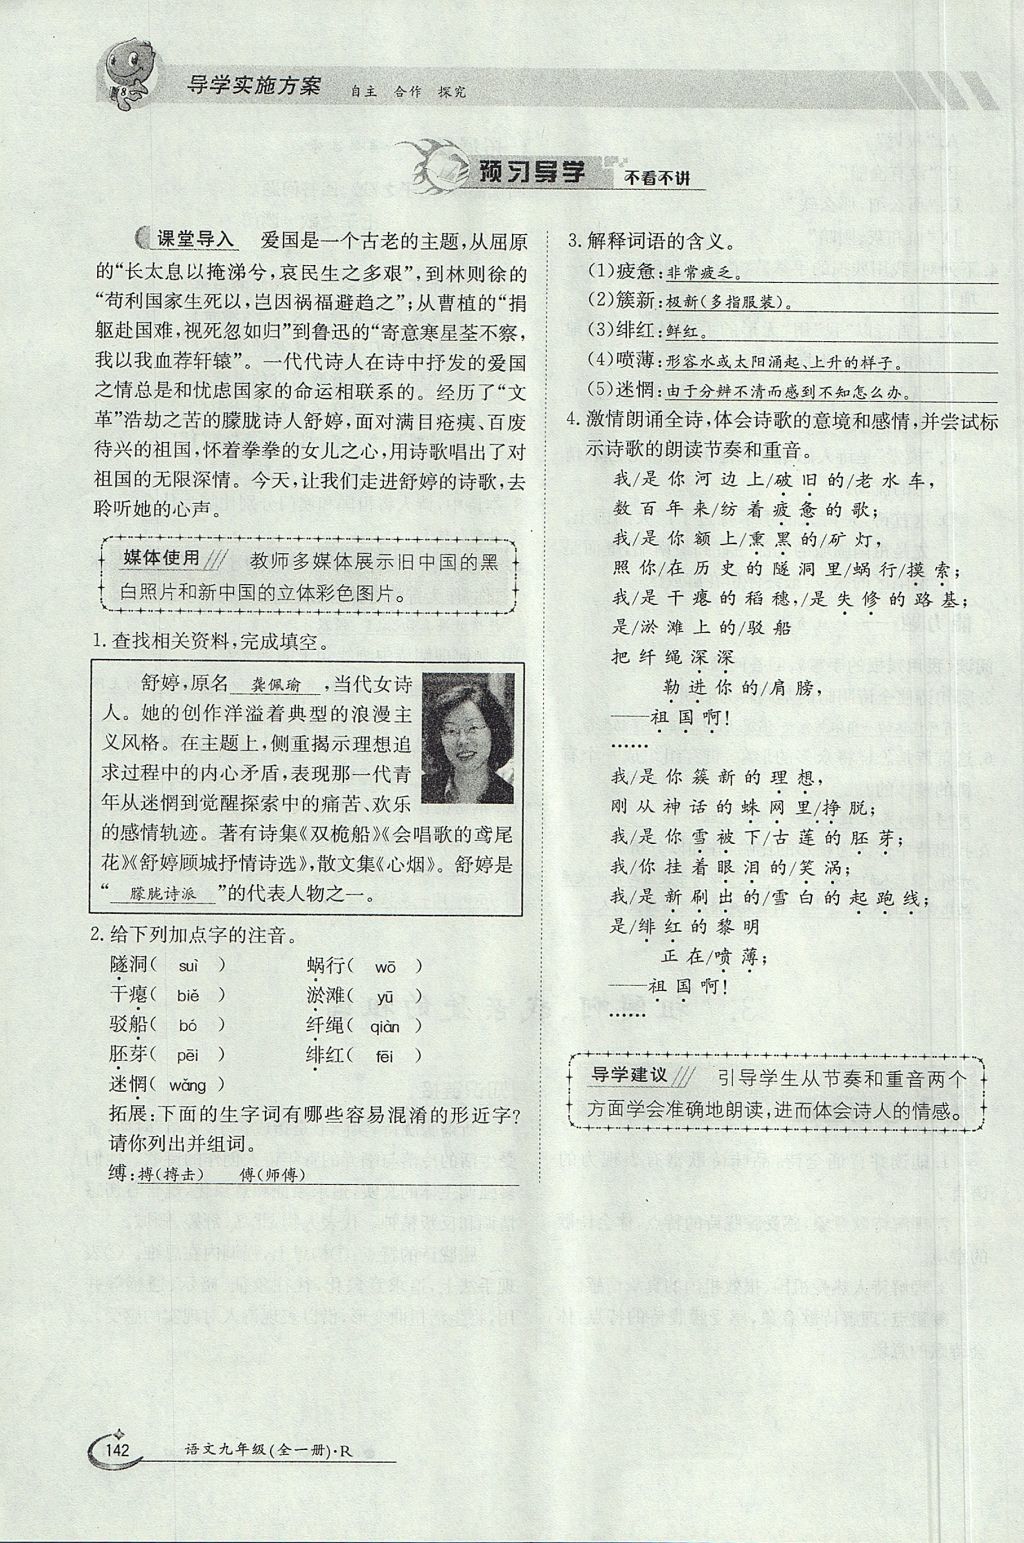 导学实施方案 自主 合作 探究
预习导学 不看不讲
课堂导入 爱国是一个古老的主题,从屈原
的“长太息以掩涕兮,哀民生之多艰”,到林则徐的
“苟利国家生死以,岂因祸福避趋之”;从曹植的“捐
躯赴国难,视死忽如归”到鲁迅的“寄意寒星荃不察,
我以我血荐轩辕”。一代代诗人在诗中抒发的爱国
之情总是和忧虑国家的命运相联系的。经历了“文
革”浩劫之苦的朦胧诗人舒婷,面对满目疮痍、百废
待兴的祖国,怀着拳拳的女儿之心,用诗歌唱出了对
祖国的无限深情。今天,让我们走进舒婷的诗歌,去
聆听她的心声。
媒体使用 教师多媒体展示旧中国的黑
白照片和新中国的立体彩色图片。
1.查找相关资料,完成填空。
舒婷,原名 龚佩瑜 ,当代女诗
人。她的创作洋溢着典型的浪漫主
义风格。在主题上,侧重揭示理想追
求过程中的内心矛盾,表现那一代青
年从迷惘到觉醒探索中的痛苦、欢乐
的感情轨迹。著有诗集《双桅船》《会唱歌的鸢尾
花》《舒婷顾城抒情诗选》,散文集《心烟》。舒婷是
“ 朦胧诗派 ”的代表人物之一。
2.给下列加点字的注音。
隧洞( suì ) 蜗行( wō )
干瘪( biě ) 淤滩( yū )
驳船( bó ) 纤绳( qiàn )
胚芽( pēi ) 绯红( fēi )
迷惘( wǎng )
拓展:下面的生字词有哪些容易混淆的形近字?
请你列出并组词。
缚:搏(搏击) 傅(师傅)
3.解释词语的含义。
(1)疲惫:非常疲乏。
(2)簇新:极新(多指服装)。
(3)绯红:鲜红。
(4)喷薄:形容水或太阳涌起、上升的样子。
(5)迷惘:由于分辨不清而感到不知怎么办。
4.激情朗诵全诗,体会诗歌的意境和感情,并尝试标
示诗歌的朗读节奏和重音。
我/是你河边上/破旧的/老水车,
数百年来/纺着疲惫的歌;
我/是你额上/熏黑的/矿灯,
照你/在历史的隧洞里/蜗行/摸索;
我/是干瘪的稻穗,/是失修的路基;
是/淤滩上的/驳船
把纤绳深深
勒进你的/肩膀,
——祖国啊!
……
我/是你簇新的理想,
刚从神话的蛛网里/挣脱;
我/是你雪被下/古莲的胚芽;
我/你挂着眼泪的/笑涡;
我/是新刷出的/雪白的起跑线;
是/绯红的黎明
正在/喷薄;
——祖国啊!
……
导学建议 引导学生从节奏和重音两个
方面学会准确地朗读,进而体会诗人的情感。
142 语文九年级(全一册)·R